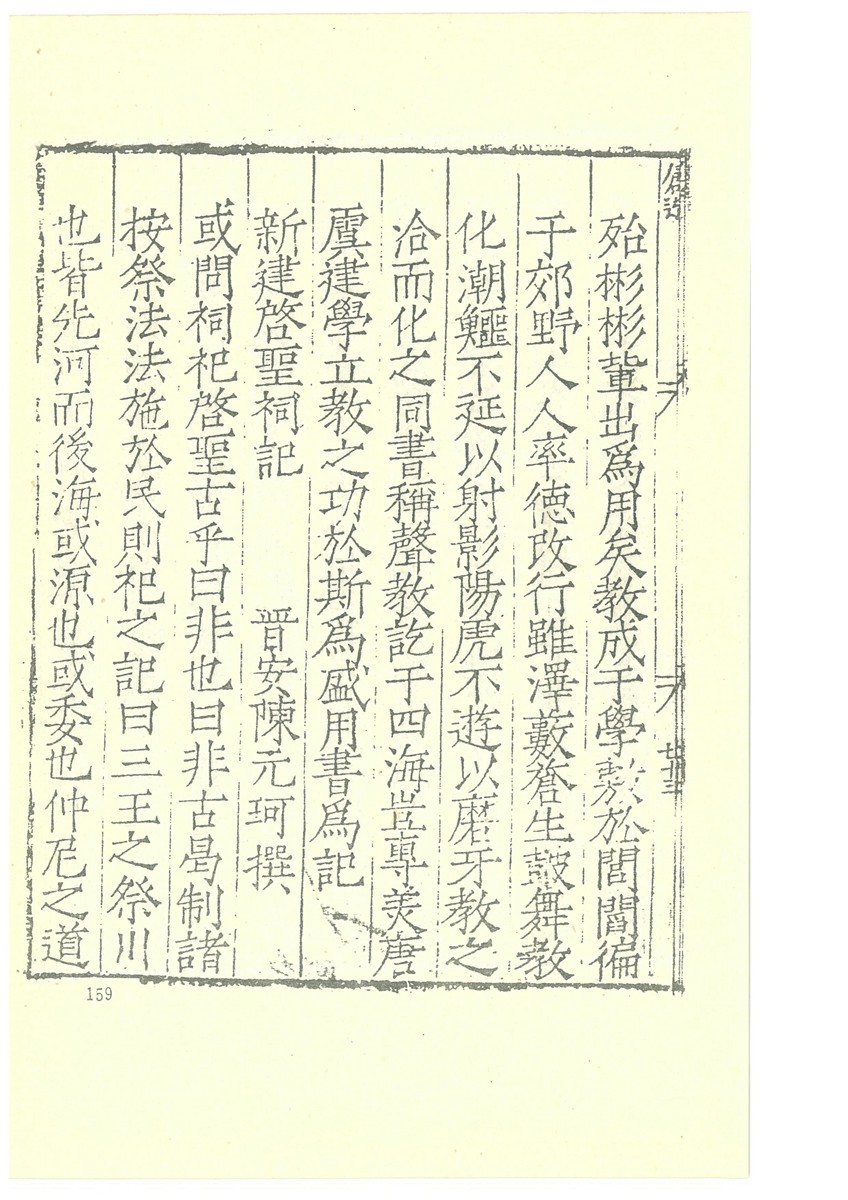 殆彬彬軰出爲用矣教成于學敷於閭閻徧
于郊野人人率德改行雖澤藪蒼生鼓舞教
化潮鱷不延以射影陽虎不遊以磨牙教之
洽而化之同書稱聲教訖于四海豈專美唐
虞建學立教之功於斯爲盛用書爲記
新建啓聖祠記　　　晉安陳元珂撰
或問祠祀啓聖古乎曰非也曰非古曷制諸
按祭法法施於民則祀之記曰三王之祭川
也皆先河而後海或源也或委也仲尼之道
159